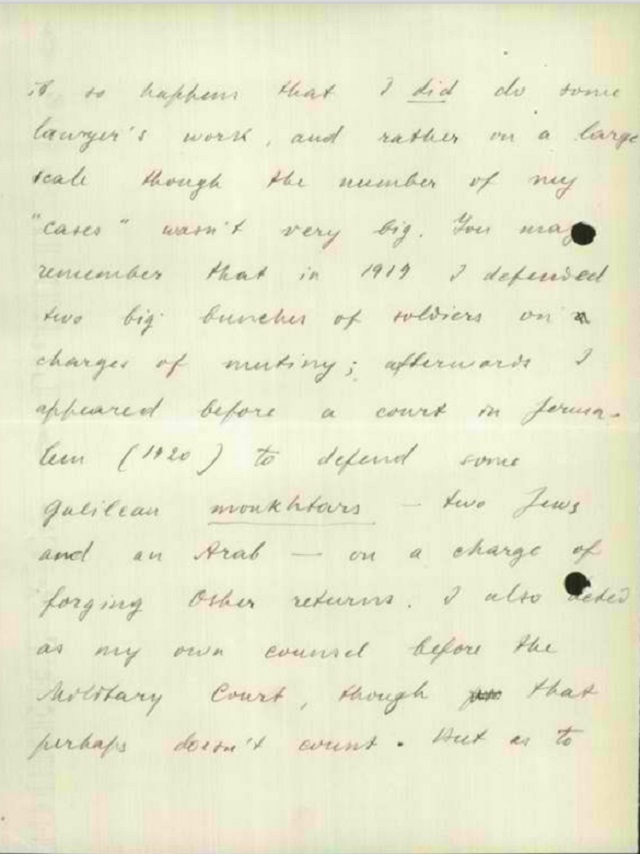 it so happens that I did do some
lawyer's work, and rather on a large
scale though the number of my
"cases" wasn't very big. You may
remember that in 1919 I defended
two big bunches of soldiers on
charges of mutiny; afterwards I
appeared before a court in Jerusa-
lem (1920) to defend some
Galilean moukhtars — two Jews
and an Arab — on a charge of
forging Osher returns. I also acted
as my own counsel before the
Military Court, though that
perhaps doesn't count. But as to